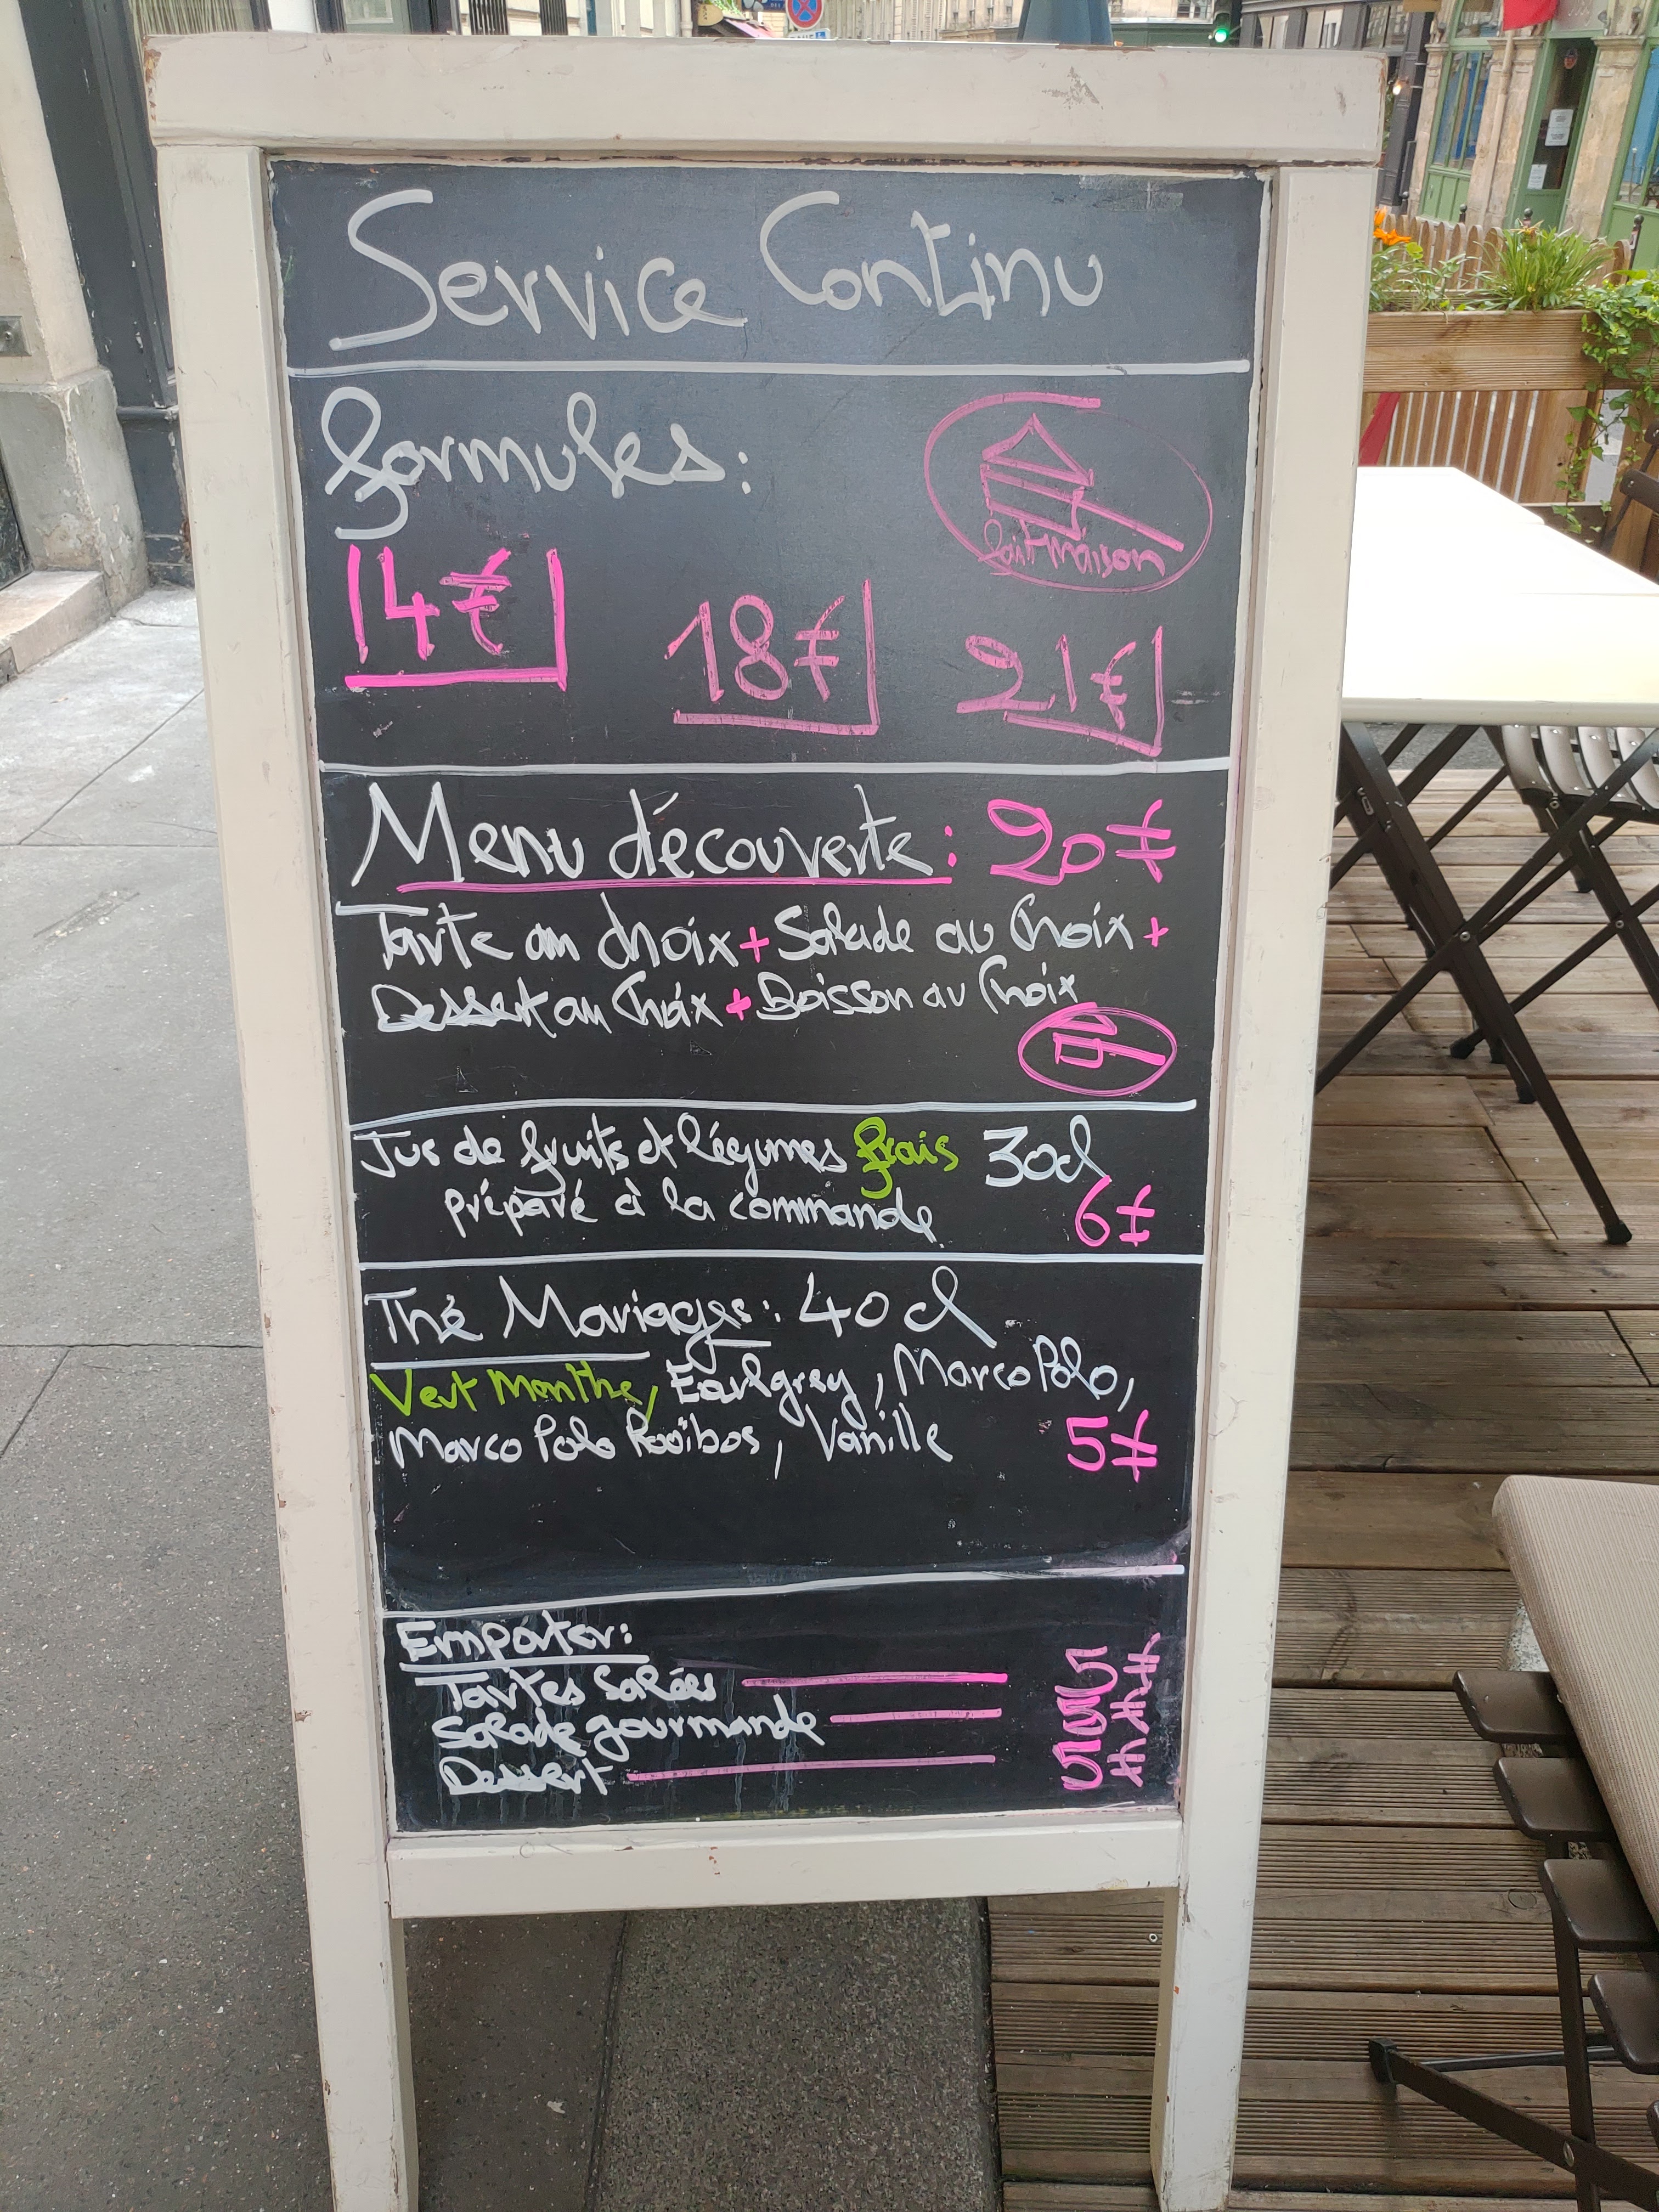 Service Continu
formules:
fait maison
14€
18€
21€
Menu découverte: 20€
Tarte au choix + Salade au Choix +
Dessert au Choix + Boisson au Choix
Jus de fruits et légumes frais 30cl
préparé à la commande 6€
Thé Mariages: 40cl
Vert Menthe, Earlgrey, Marco Polo,
Marco Polo Rooïbos, Vanille 5€
Emporter:
Tartes Salées
Salade gourmande
Dessert